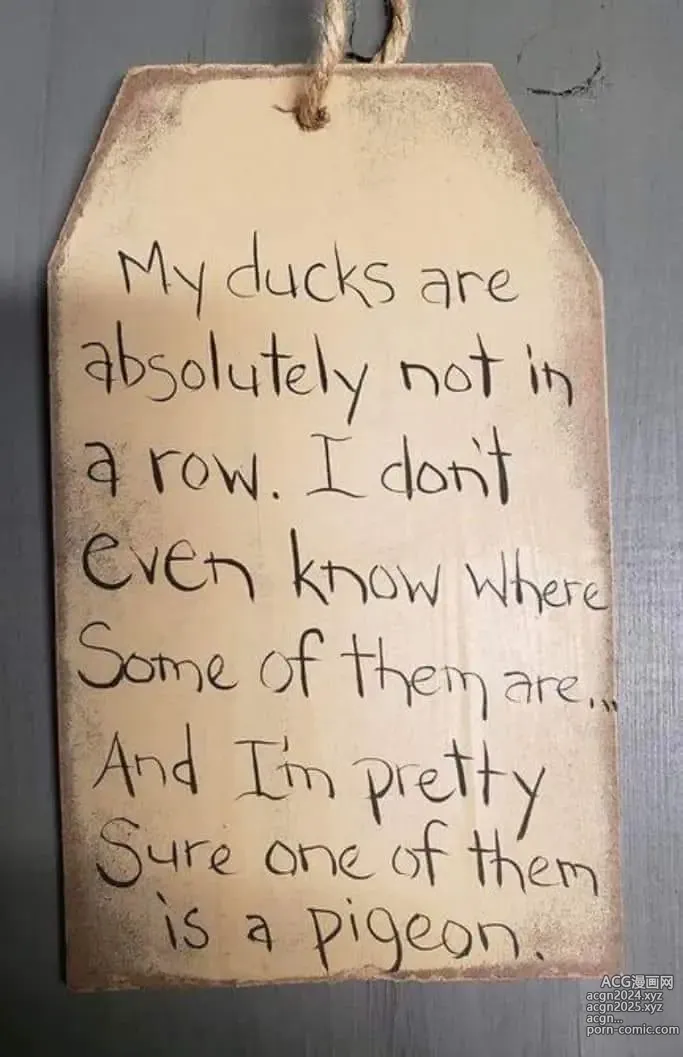 My ducks are
absolutely not in
a row. I don't
even know where
Some of them are...
And I'm pretty
Sure one of them
is a pigeon.
ACG漫画网
acgn2024.xyz
acgn2025.xyz
acgn...
porn-comic.com